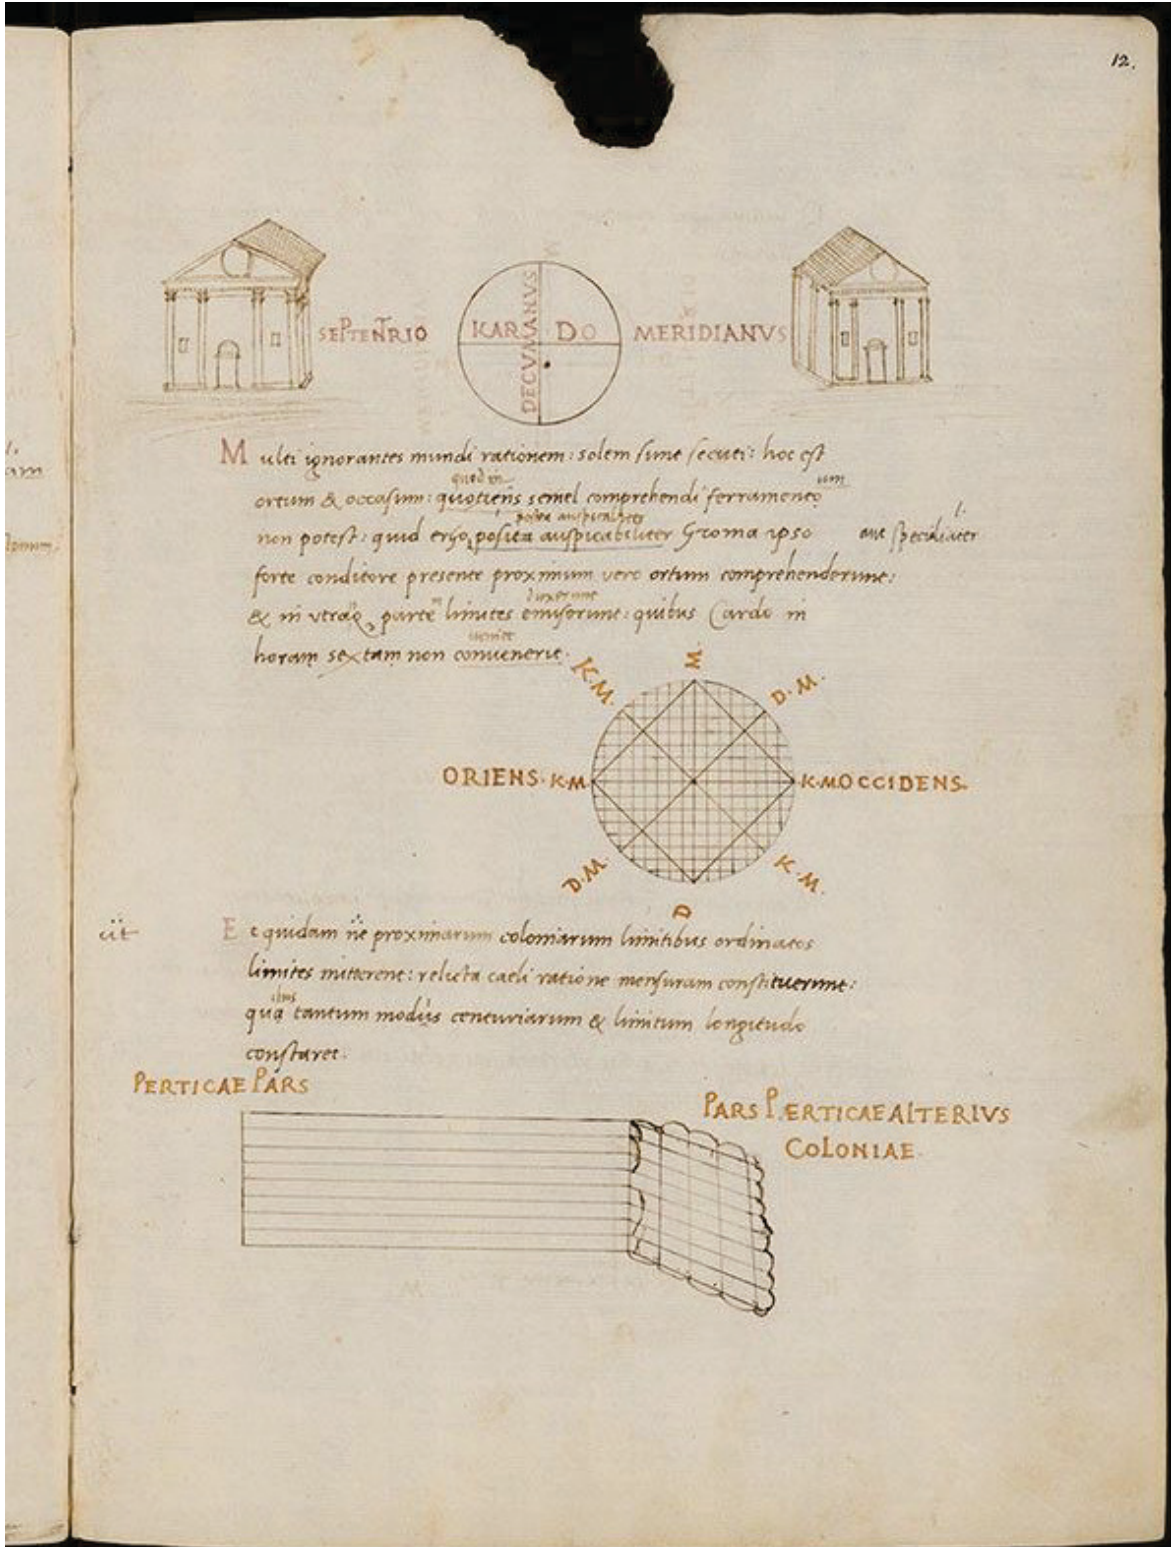 12.
SEPTENTRIO KARDO DECVMANVS MERIDIANVS
Multi ignorantes mundi rationem: solem sunt secuti: hoc est
quod in um
ortum & occasum: quotiens semel comprehendi ferramento
postea auspicaliter
non potest: quid ergo posita auspicabiliter Groma ipso aut specialiter
forte conditore presente proximum vero ortum comprehenderunt:
duxerunt
& in utraq parte limites emiserunt: quibus Cardo in
horam sextam non convenerit.
K.M. M. D.M.
ORIENS. K.M. K.M. OCCIDENS.
D.M. K.M.
D
ut Et quidam ne proximarum coloniarum limitibus ordinatos
limites mitterent: relicta caeli ratione mensuram constituerunt:
ibus
qua tantum modus centuriarum & limitum longitudo
constaret.
PERTICAE PARS
PARS PÆRTICAE ALTERIVS
COLONIAE